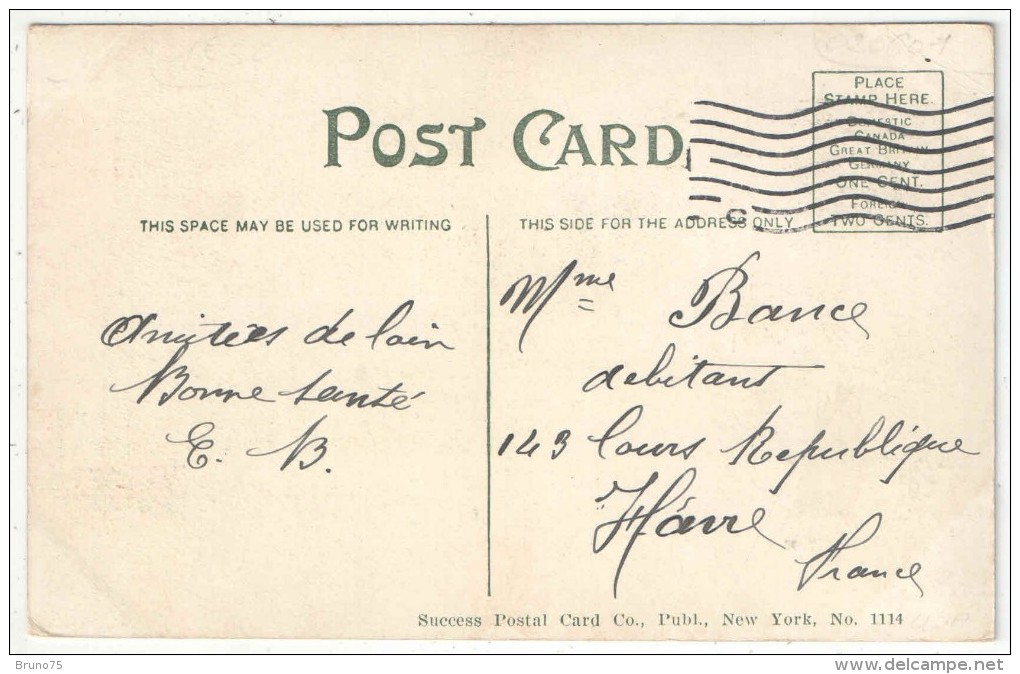 POST CARD
PLACE
STAMP HERE
DOMESTIC
CANADA
GREAT BRITAIN
GERMANY
ONE CENT.
FOREIGN
TWO CENTS.
THIS SPACE MAY BE USED FOR WRITING
THIS SIDE FOR THE ADDRESS ONLY
Amitiées de loin
Bonne santé
E. B.
Mme Bance
debitant
143 Cours Republique
Hâvre
France
Success Postal Card Co., Publ., New York, No. 1114
Bruno75
www.delcampe.net